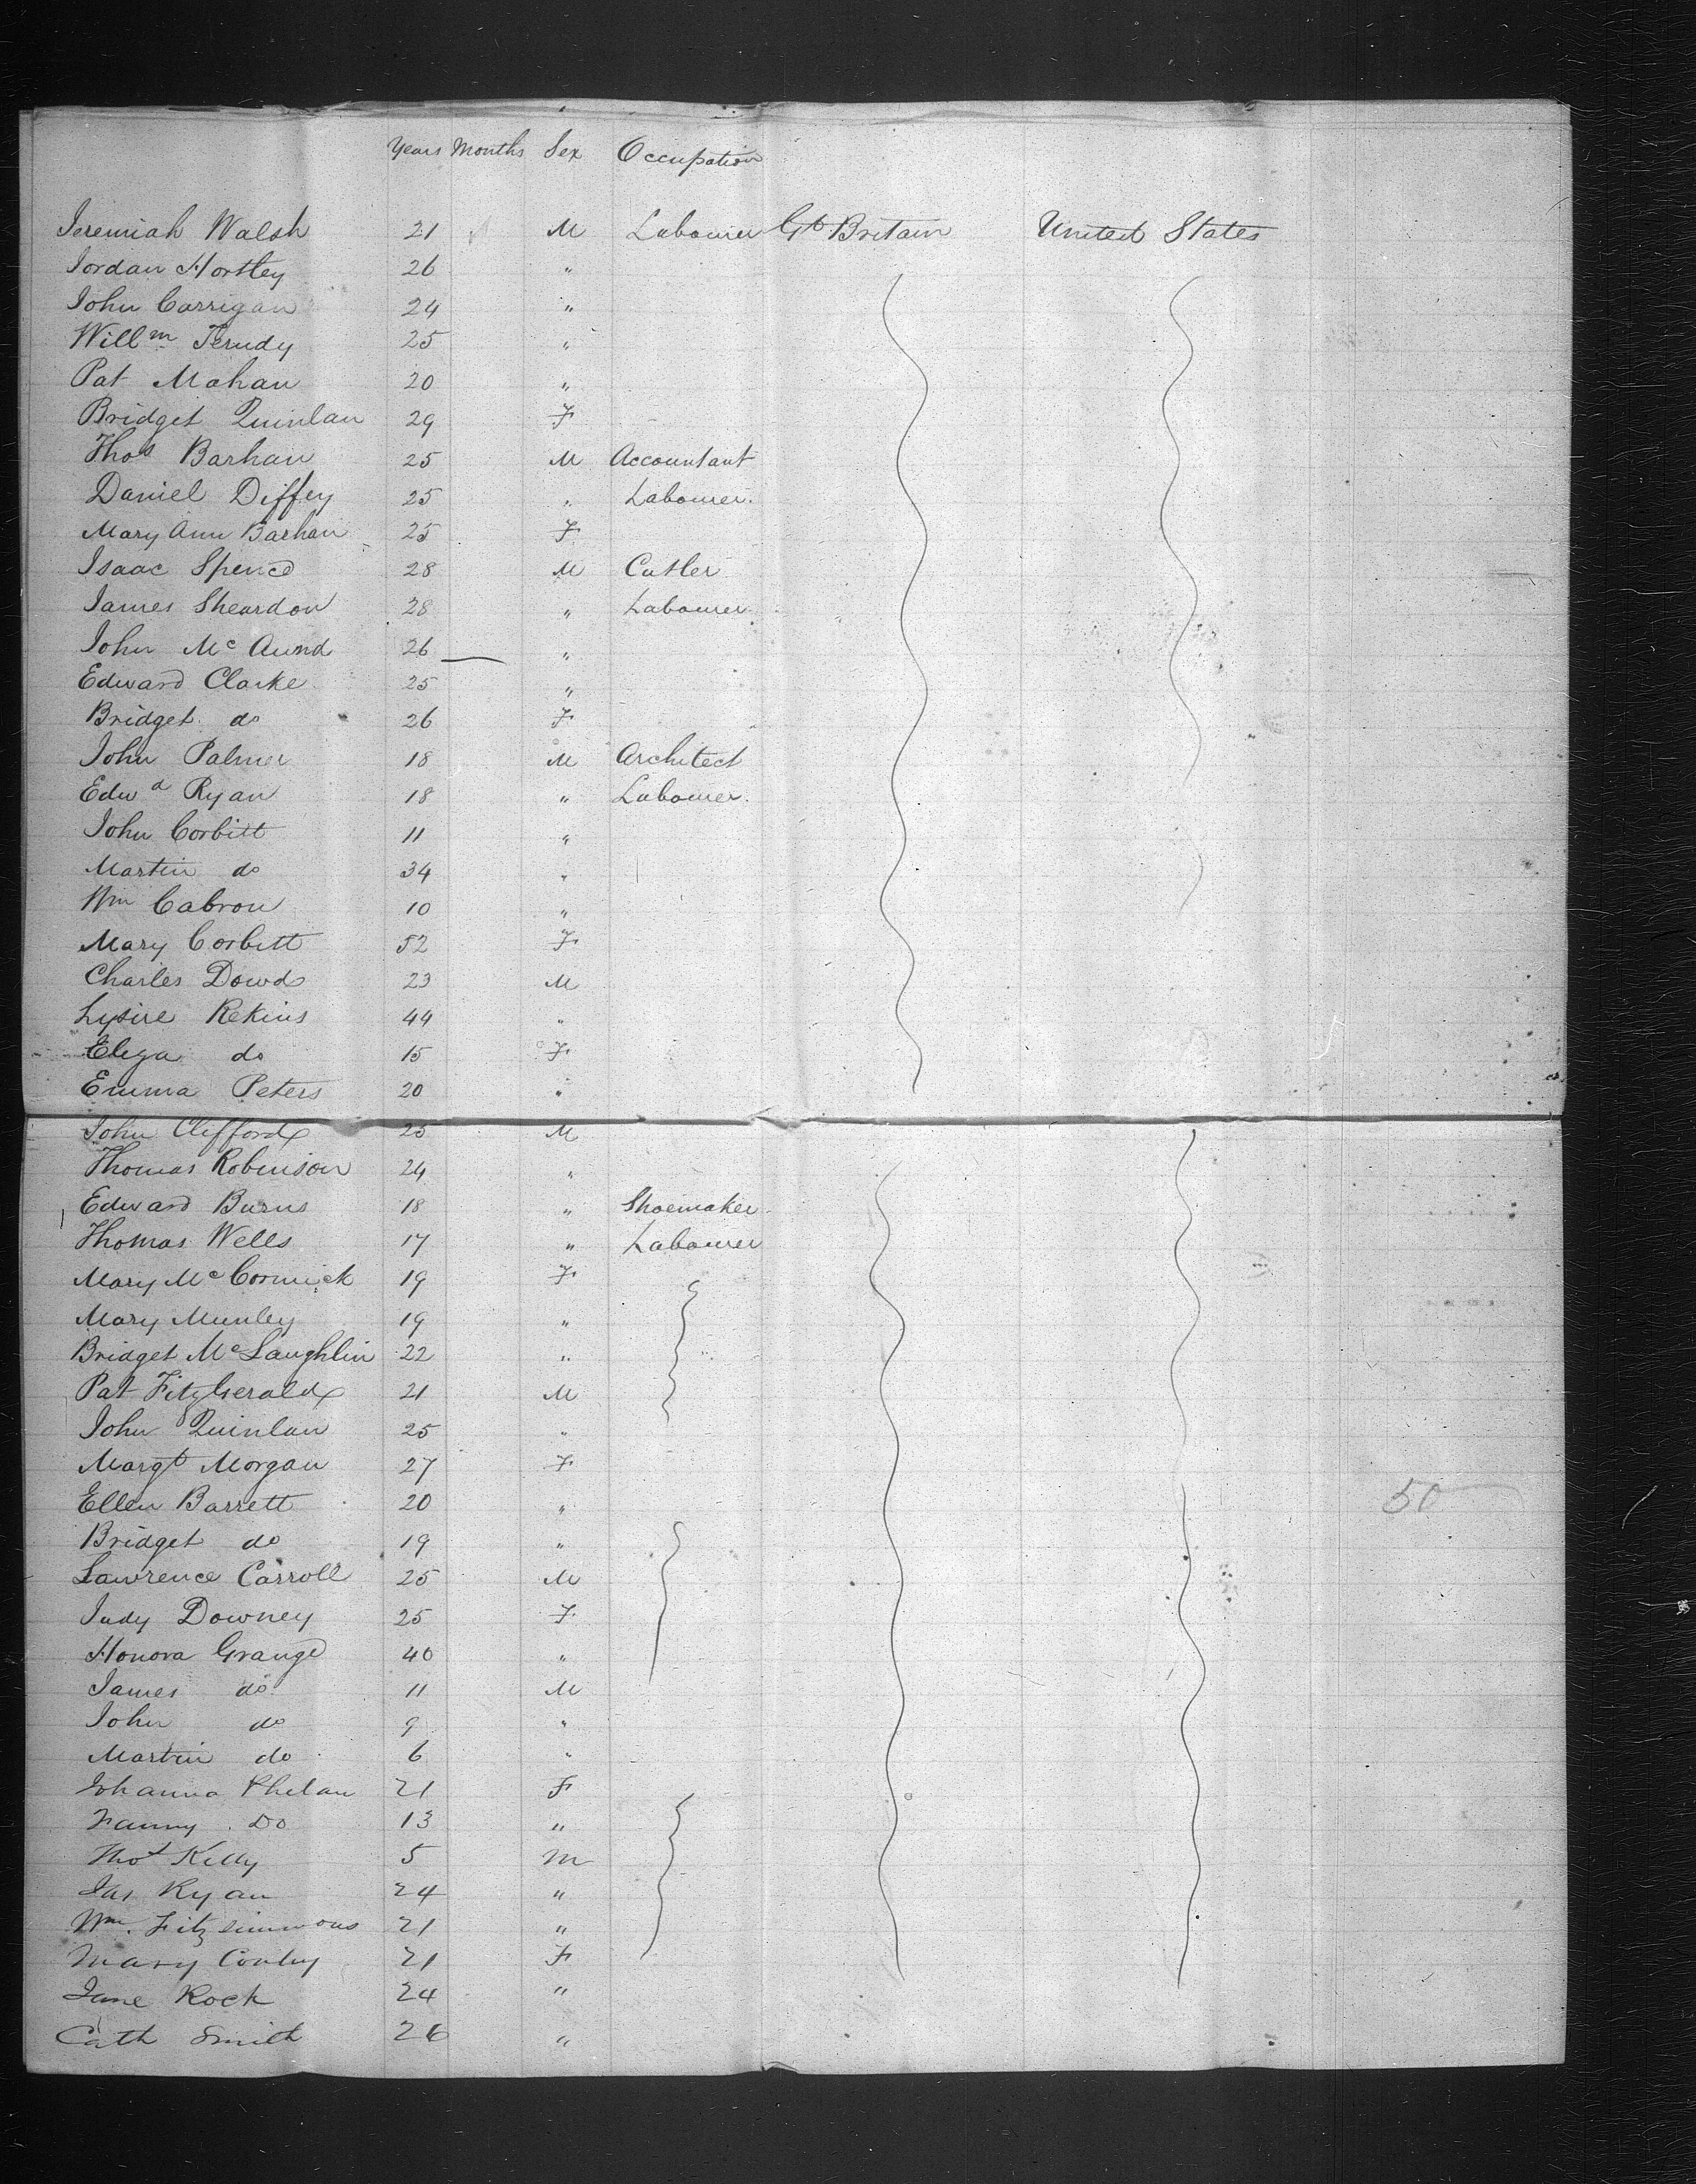 Years Months Sex Occupation
Jeremiah Walsh 21 M Labourer Gt Britain United States
Jordan Hortley 26 "
John Carrigan 24 "
Willm 25 "
Pat Mahan 20 "
Bridget Quinlan 29 F
Thos Barhan 25 M Accountant
Daniel Diffey 25 " Labourer.
Mary Ann Barhan 25 F
Isaac Spence 28 M Cutler
James Sheardon 28 " Labourer.
John Mc 26 — "
Edward Clarke 25 "
Bridget do 26 F
John Palmer 18 M Architect
Edwd Ryan 18 " Labourer.
John Corbitt 11 "
Martin do 34 "
Wm Cabron 10 "
Mary Corbitt 52 F
Charles Dowd 23 M
Rekins 44 "
Eliza do 15 F
Emma Peters 20 "
John Clifford 25 M
Thomas Robinson 24 "
Edward Burns 18 " Shoemaker.
Thomas Wells 17 " Labourer
Mary McCormick 19 F
Mary Munley 19 "
Bridget McLaughlin 22 "
Pat FitzGerald 21 M
John Quinlan 25 "
Margt Morgan 27 F
Ellen Barrett 20 " 50
Bridget do 19 "
Lawrence Carroll 25 M
Judy Downey 25 F
Honora Grange 40 "
James do 11 M
John do 9 "
Martin do 6 "
Johanna Phelan 21 F
Fanny Do 13 "
Thos Kelly 5 M
Jas Ryan 24 "
Wm. Fitzsimmons 21 "
Mary Conley 21 F
Jane Rock 24 "
Cath Smith 26 "